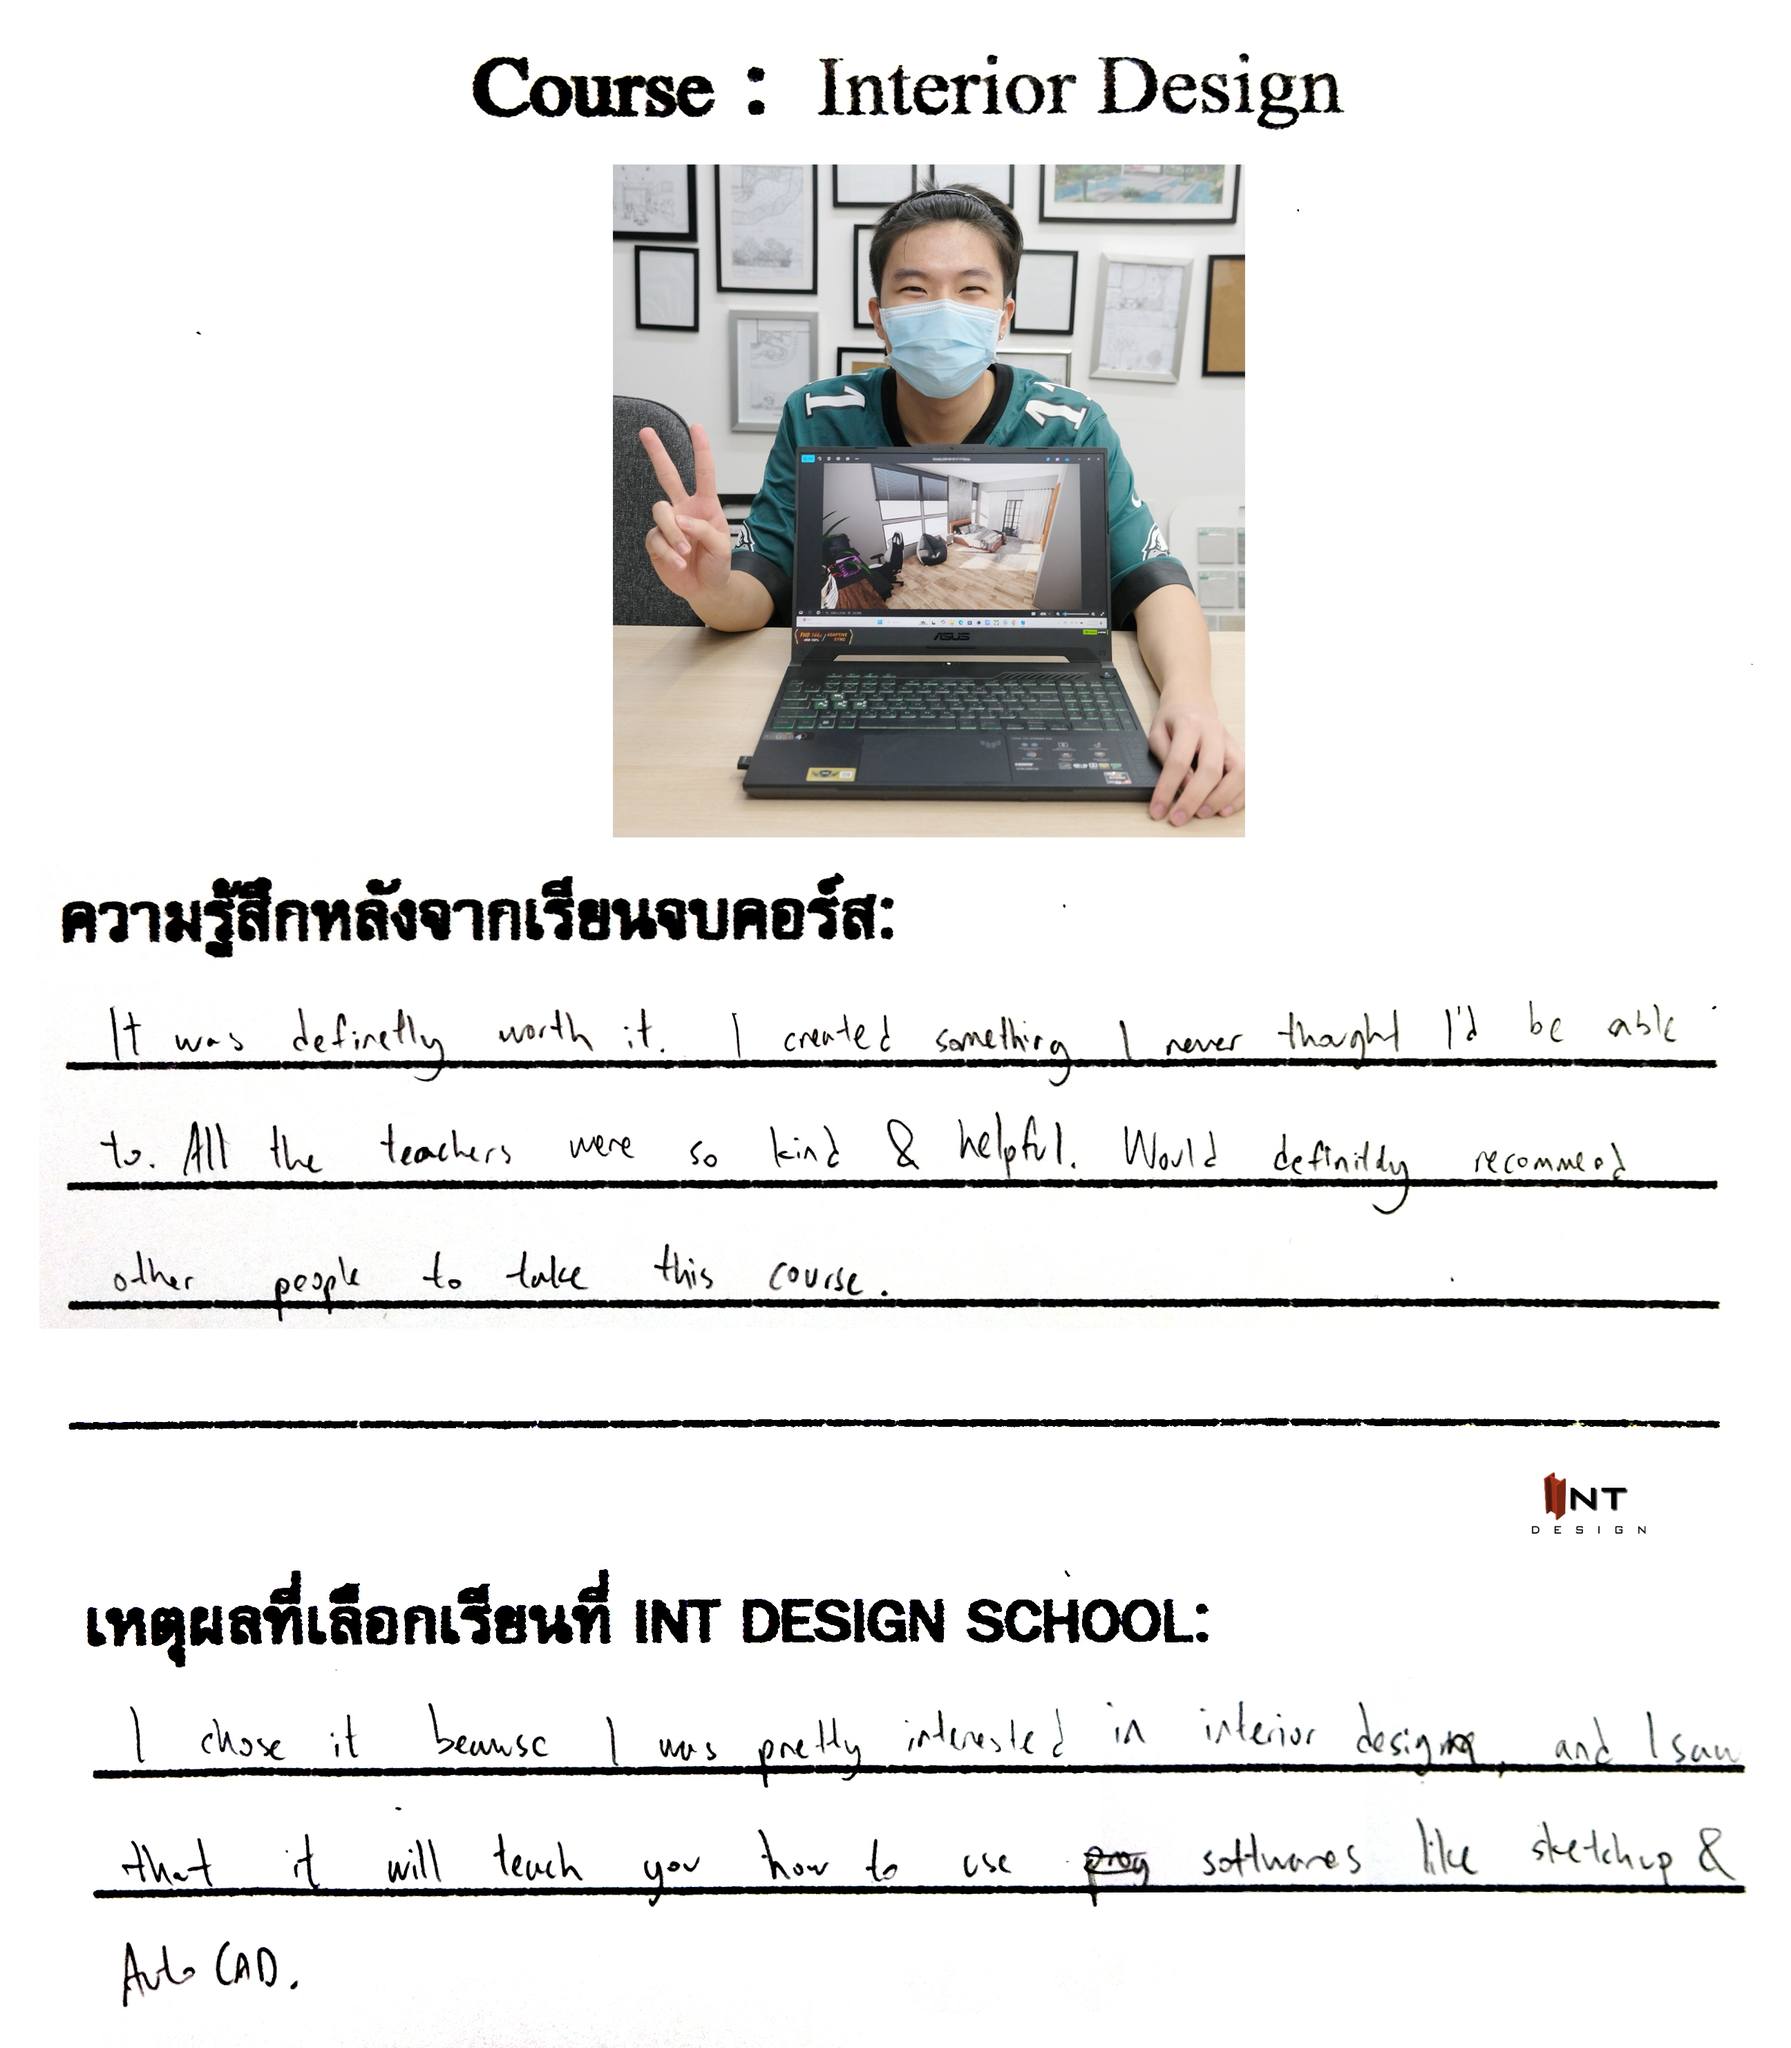 Course : Interior Design
1 11
ASUS
ความรู้สึกหลังจากเรียนจบคอร์ส:
It was definetly worth it. I created something I never thought I'd be able
to. All the teachers were so kind & helpful. Would definitdy recommend
other people to take this course.
INT
DESIGN
เหตุผลที่เลือกเรียนที่ INT DESIGN SCHOOL:
I chose it because I was pretty interested in interior design, and I saw
that it will teach you how to use prog softwares like sketchup &
AutoCAD.